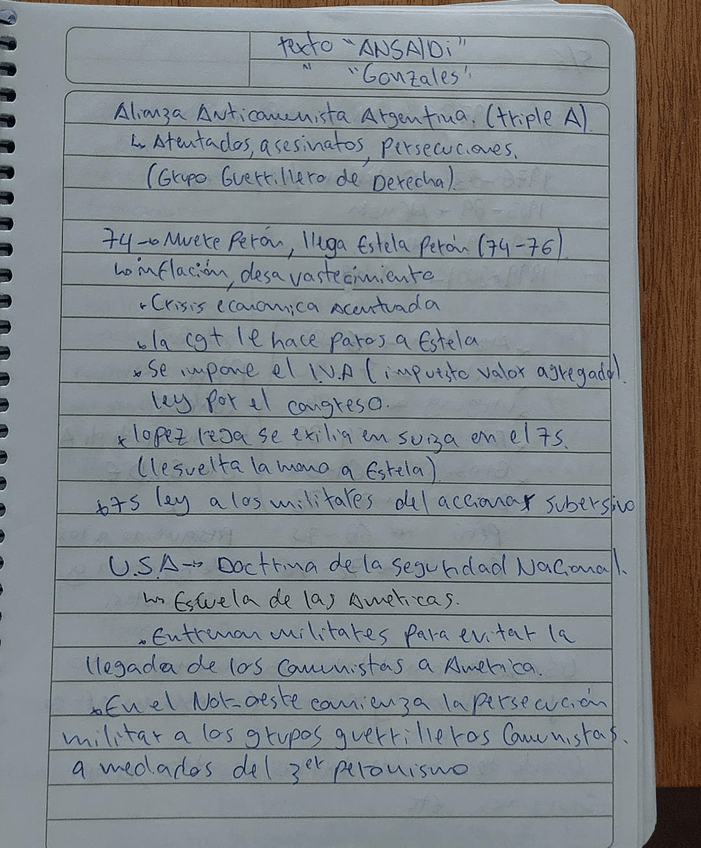 texto "ANSAlDi"
" "Gonzales"
Alianza Anticomunista Argentina. (triple A)
↳ Atentados, asesinatos, persecuciones.
(Grupo Guerrillero de Derecha)
74→ Muere Perón, llega Estela Perón (74-76)
↳ inflación, desavastecimiento
• Crisis economica acentuada
• la cgt le hace paros a Estela
• Se impone el I.V.A (impuesto valor agregado).
ley por el congreso.
• lopez rega se exilia en suiza en el 75.
(le suelta la mano a Estela)
• 75 ley a los militares del accionar subersivo
U.S.A → Doctrina de la Seguridad Nacional.
↳ Escuela de las Américas.
• Entrenan militares para evitar la
llegada de los Comunistas a America.
• En el Nor-oeste comienza la persecución
militar a los grupos guerrilleros Comunistas.
a mediados del 3er peronismo